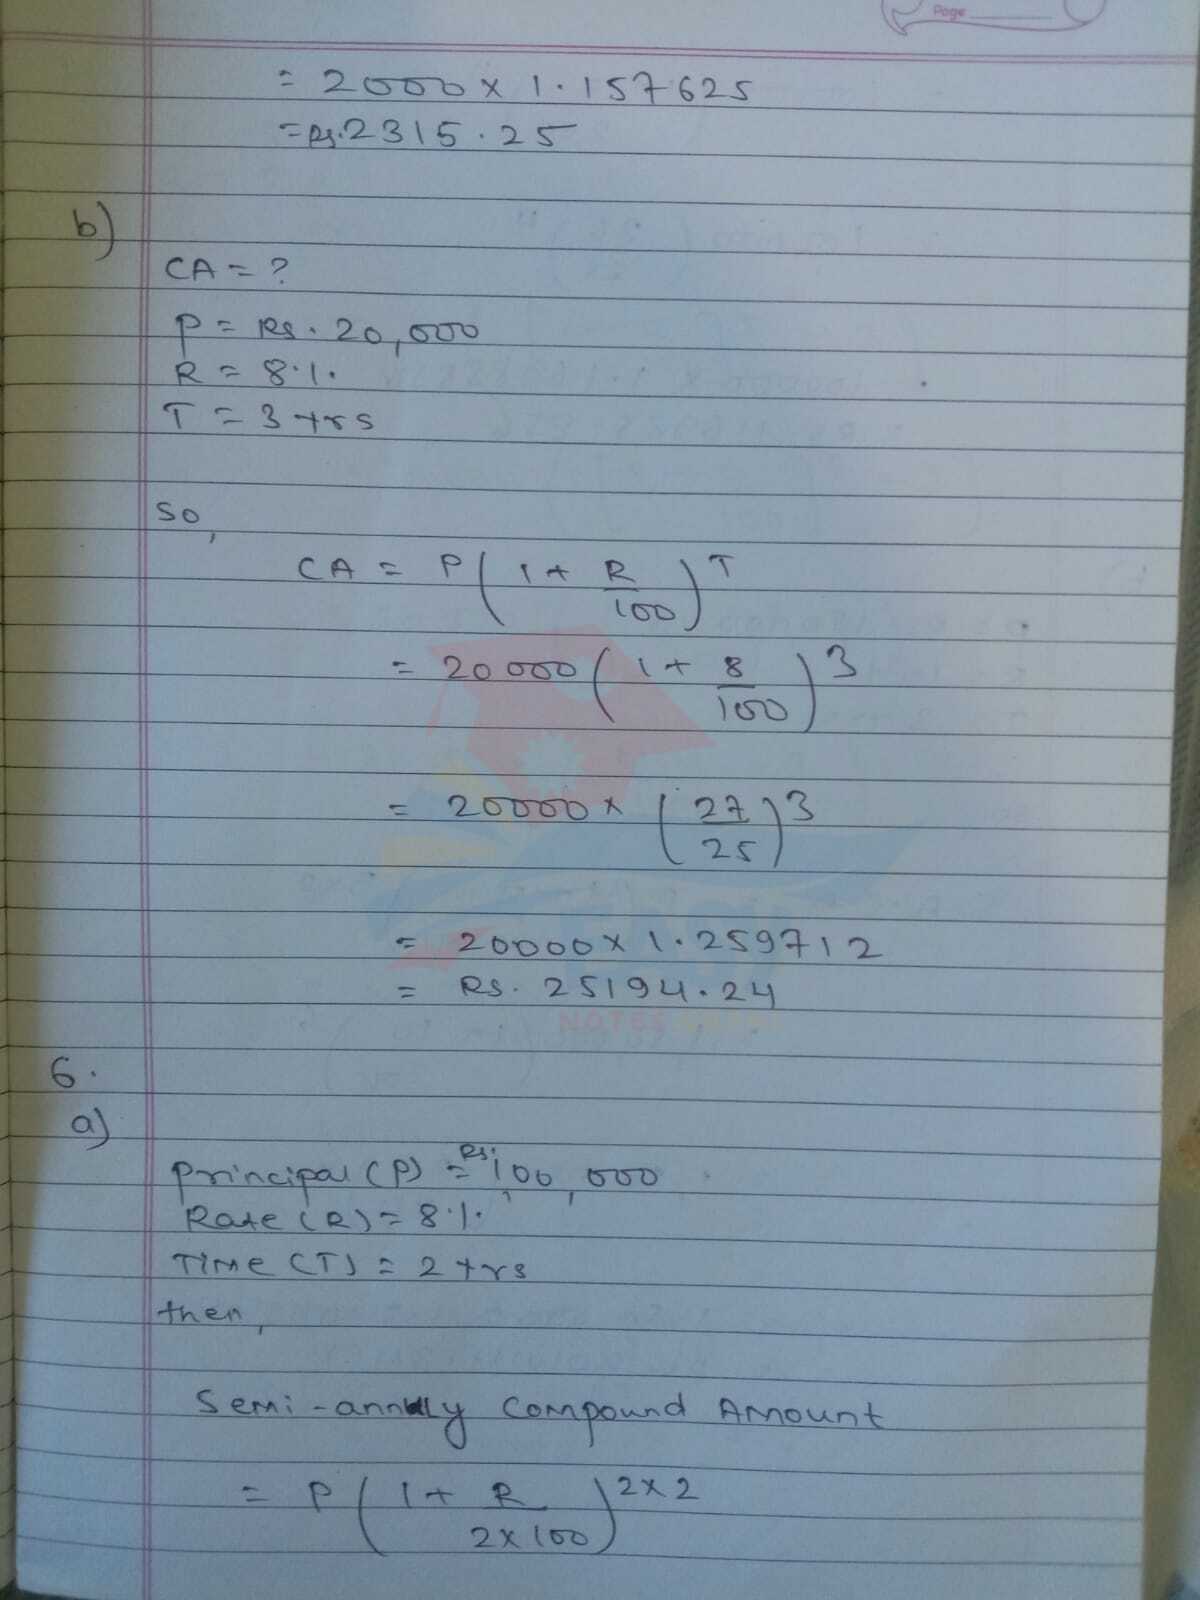 Page
= 2000 × 1.157625
= Rs. 2315.25
b)
CA = ?
P = Rs. 20,000
R = 8%
T = 3 yrs
so,
CA = P(1 + R/100)^T
= 20000(1 + 8/100)^3
= 20000 × (27/25)^3
= 20000 × 1.259712
= Rs. 25194.24
NOTES
6.
a)
Principal (P) = Rs. 100,000
Rate (R) = 8%
Time (T) = 2 yrs
then,
Semi-annully Compound Amount
= P(1 + R/2×100)^2×2